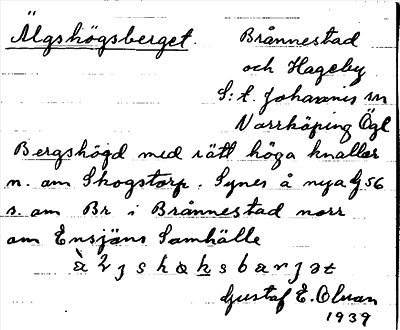 Älgshögsberget. Brånnestad
och Hageby
S:t. Johannis sn
Norrköping Ögl
Bergshöjd med rätt höga knallar
n. om Skogstorp. Synes å nya G 56
s. om Br i Brånnestad norr
om Ensjöns Samhälle
Gustaf E. Olsson
1939